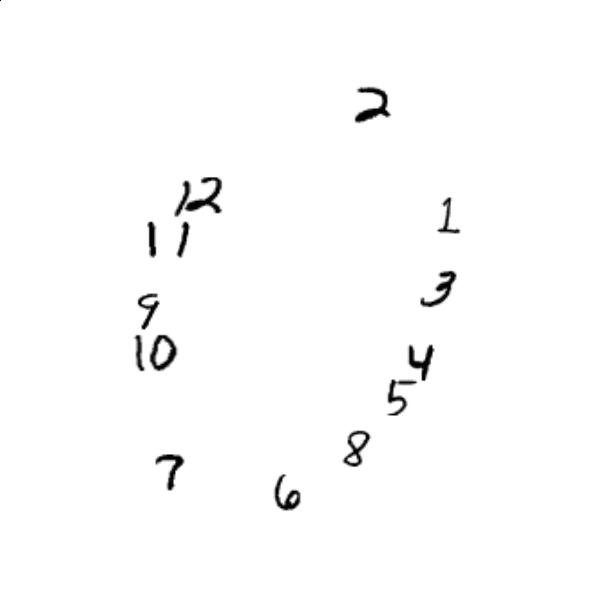 2
12
1
11
3
9
10
4
5
8
7
6